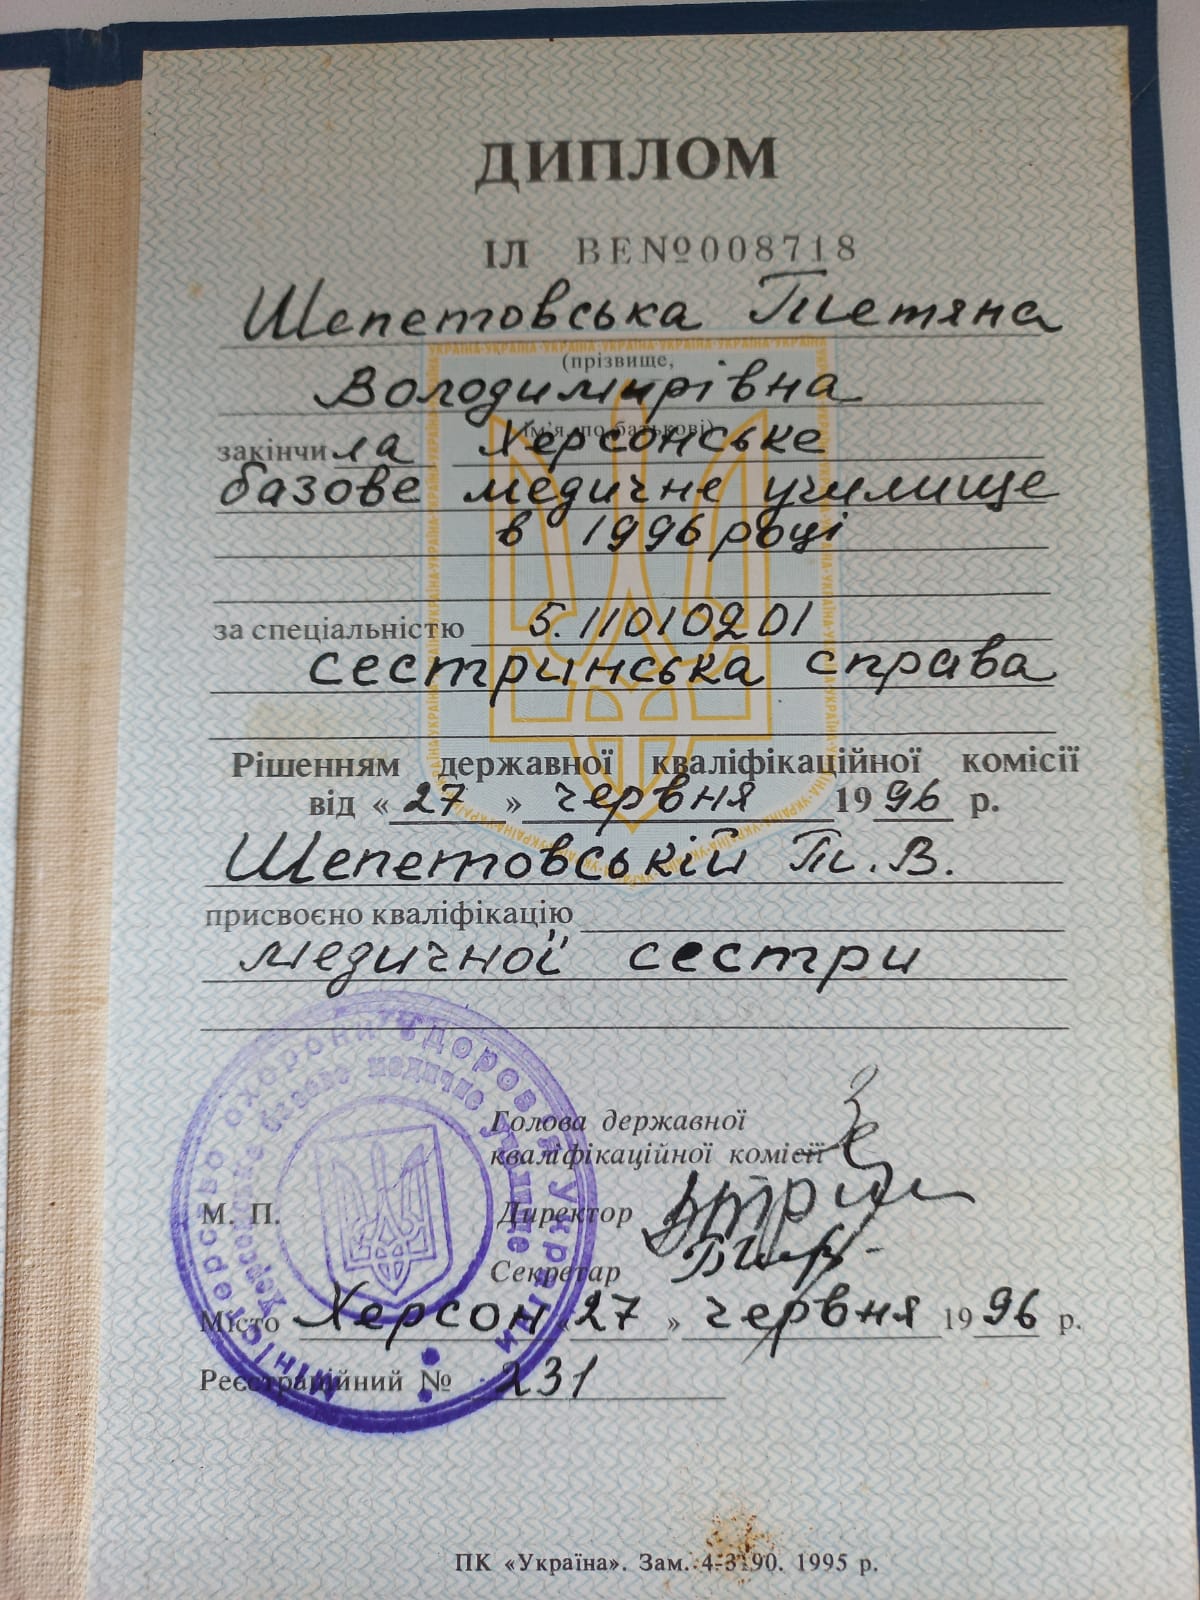 ДИПЛОМ
ІЛ ВЕ№008718
Шепетовська Тетяна
(прізвище,
Володимирівна
ім'я, по батькові)
закінчила Херсонське
базове медичне училище
в 1996 році
за спеціальністю 5.11010201
сестринська справа
Рішенням державної кваліфікаційної комісії
від «27» червня 1996 р.
Шепетовській Т.В.
присвоєно кваліфікацію
медичної сестри
Голова державної
кваліфікаційної комісії
М. П.
Директор
Секретар
Місто Херсон «27» червня 1996 р.
Реєстраційний № 231
Міністерство охорони здоров'я України
Херсонське базове медичне училище
УКРАЇНА·УКРАЇНА·УКРАЇНА·УКРАЇНА·УКРАЇНА
ПК «Україна». Зам. 4-3190. 1995 р.